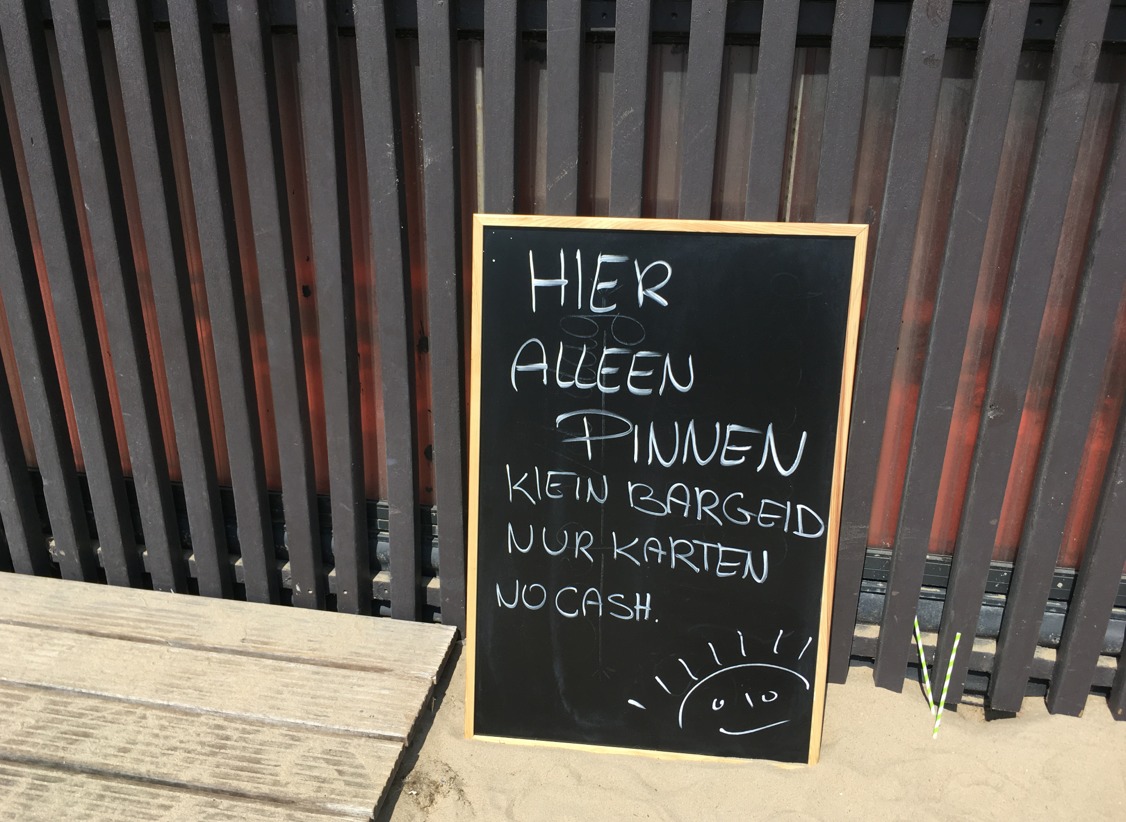 HIER
ALLEEN
PINNEN
KLEIN BARGELD
NUR KARTEN
NO CASH.